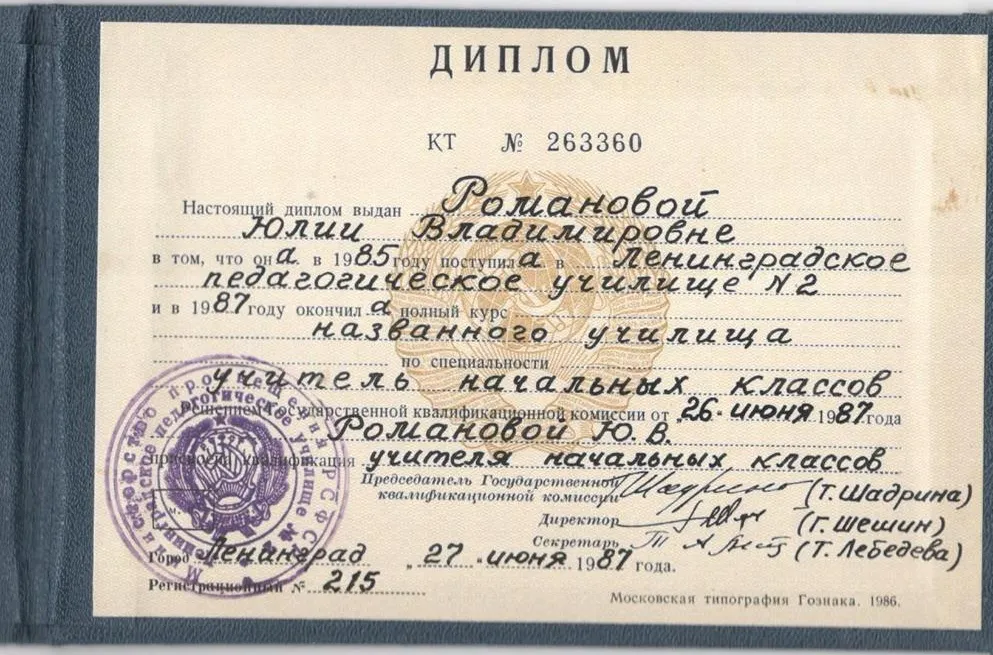 ДИПЛОМ
КТ № 263360
Настоящий диплом выдан Романовой
Юлии Владимировне
в том, что она в 1985 году поступила в Ленинградское
педагогическое училище № 2
и в 1987 году окончила полный курс
названного училища
по специальности
учитель начальных классов
Решением Государственной квалификационной комиссии от „26" июня 1987 года
Романовой Ю. В.
присвоена квалификация учителя начальных классов
Председатель Государственной
квалификационной комиссии Шадрина (Т. Шадрина)
Директор (Г. Шешин)
Секретарь (Т. Лебедева)
Город Ленинград „27" июня 1987 года.
Регистрационный № 215
Московская типография Гознака. 1986.
Министерство просвещения РСФСР
Ленинградское педагогическое училище №
М. П.